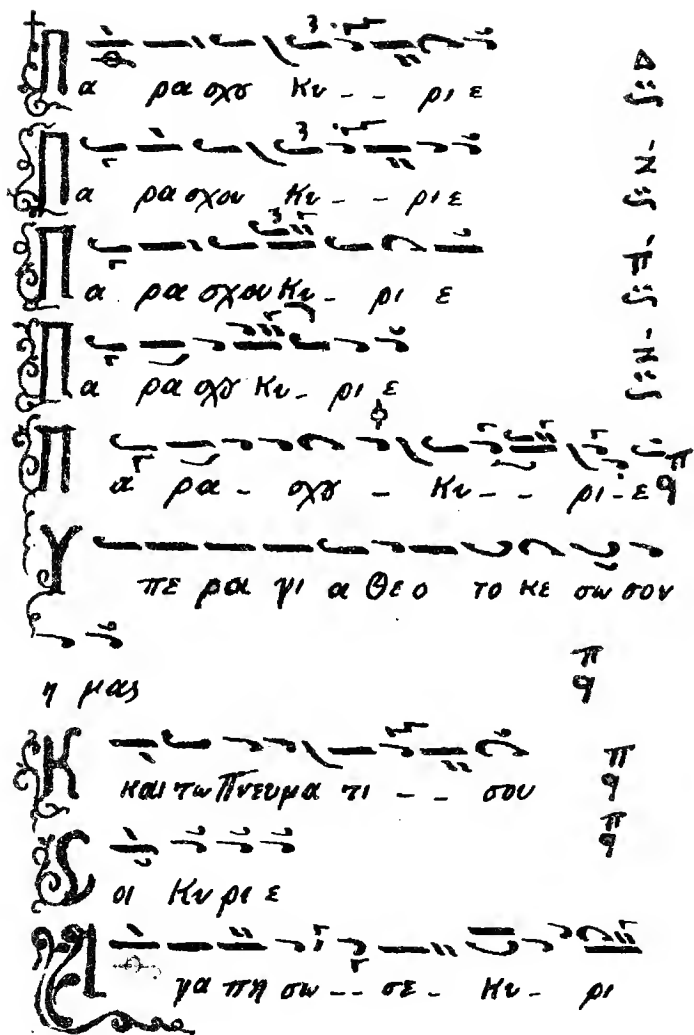 Πα ρα σχȣ Κυ _ _ ρι ε
Πα ρα σχου Κυ _ _ ρι ε
Πα ρα σχου Κυ _ ρι ε
Πα ρα σχȣ Κυ _ ρι ε
Πα ρα _ σχȣ _ Κυ _ _ ρι _ ε
Υ πε ρα γι α Θε ο το κε σω σον
η μας
Κ και τω Πνευμα τι _ _ σου
Σ οι Κυ ρι ε
Α γα πη σω _ _ σε _ Κυ _ ρι